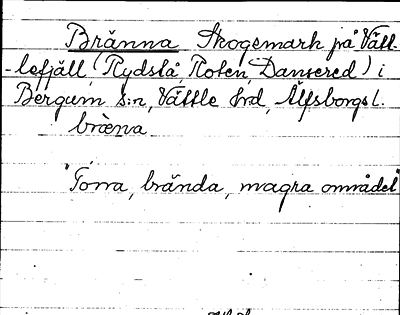 Bränna Skogsmark på Vätt-
-lefjäll (Rydslå, Roten, Dansered) i
Bergum s:n, Vättle hrd, Älfsborgs l.
bræna
"Torra, brända, magra området"